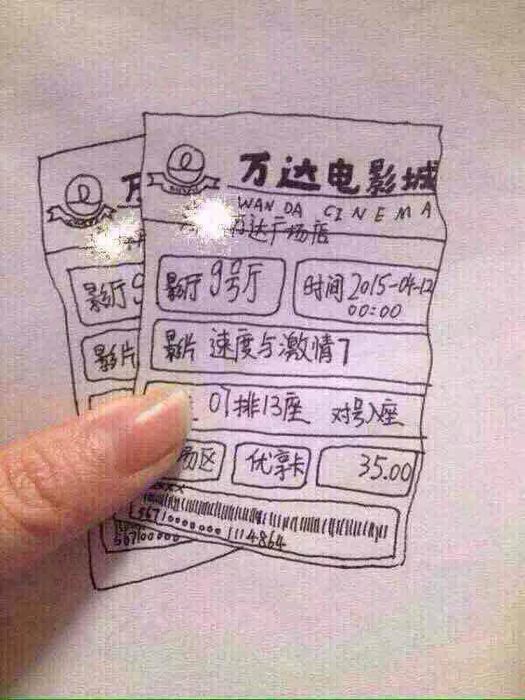 万达电影城
WANDA CINEMA
万达广场店
影厅 9号厅
时间 2015-04-12
00:00
影片 速度与激情7
07排13座 对号入座
区 优享卡 35.00
567100000001114864
影厅 9
影片